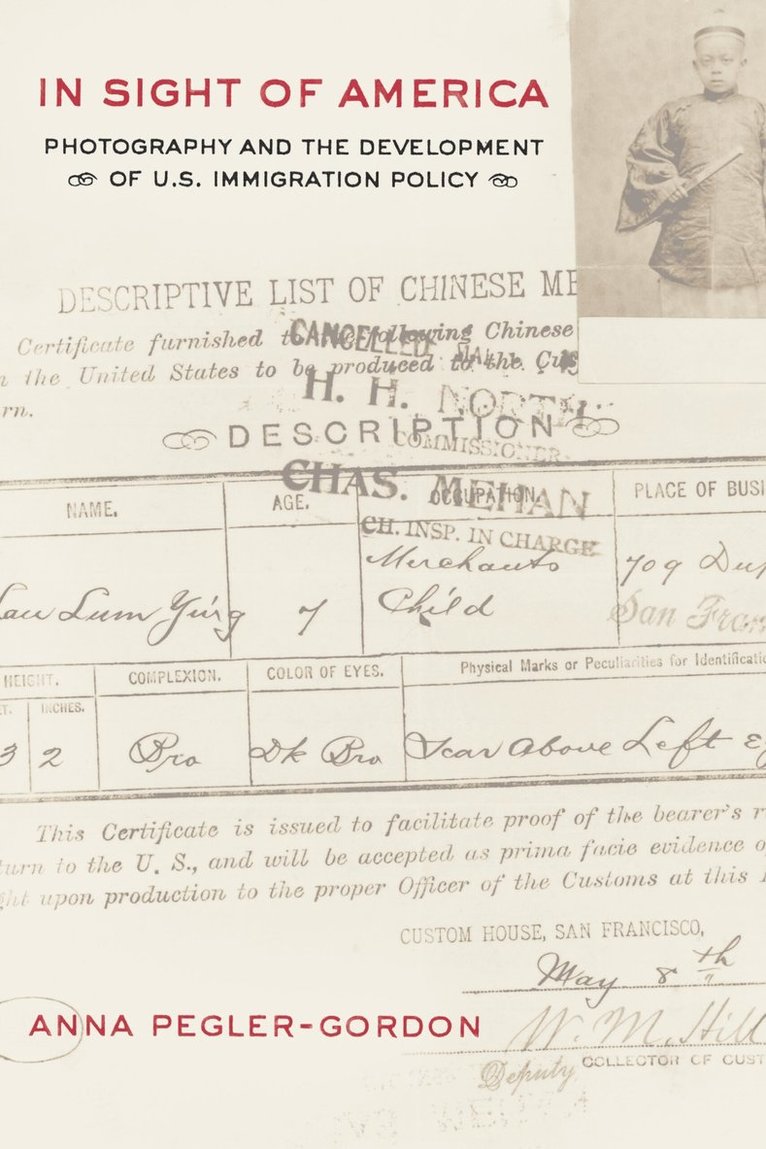 IN SIGHT OF AMERICA
PHOTOGRAPHY AND THE DEVELOPMENT
OF U.S. IMMIGRATION POLICY
DESCRIPTIVE LIST OF CHINESE ME
Certificate furnished to the following Chinese
n the United States to be produced to the Cus
rn.
CANCELLED
H. H. NORTH
COMMISSIONER
DESCRIPTION
CHAS. MEHAN
CH. INSP. IN CHARGE
NAME. AGE. OCCUPATION. PLACE OF BUSI
Lum Ying 7 Merchants Child 709 Dup
San Fran
HEIGHT. COMPLEXION. COLOR OF EYES. Physical Marks or Peculiarities for Identificatio
T. INCHES.
3 2 Bro Dk Bro Scar Above Left Ey
This Certificate is issued to facilitate proof of the bearer's r
turn to the U. S., and will be accepted as prima facie evidence o
ght upon production to the proper Officer of the Customs at this
CUSTOM HOUSE, SAN FRANCISCO,
May 8th
ANNA PEGLER-GORDON
W. M. Hill
Deputy COLLECTOR OF CUST